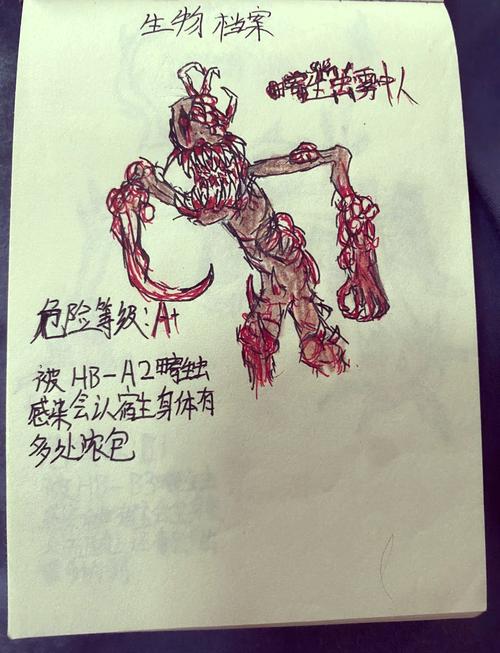 生物档案
雾中人
危险等级:A+
被HB-A2
感染会认宿生身体有
多处浓包